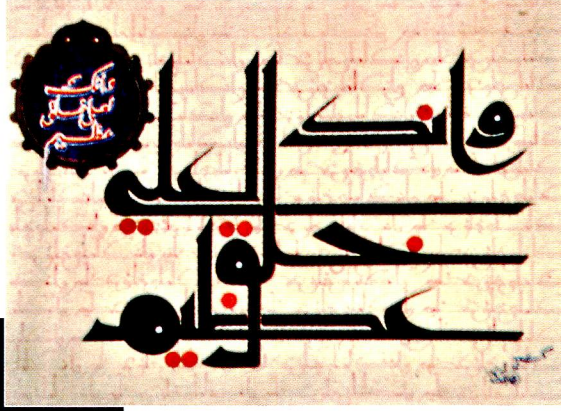 وانك
لعلي
خلق
عظيم
وانك
لعلى خلق
عظيم